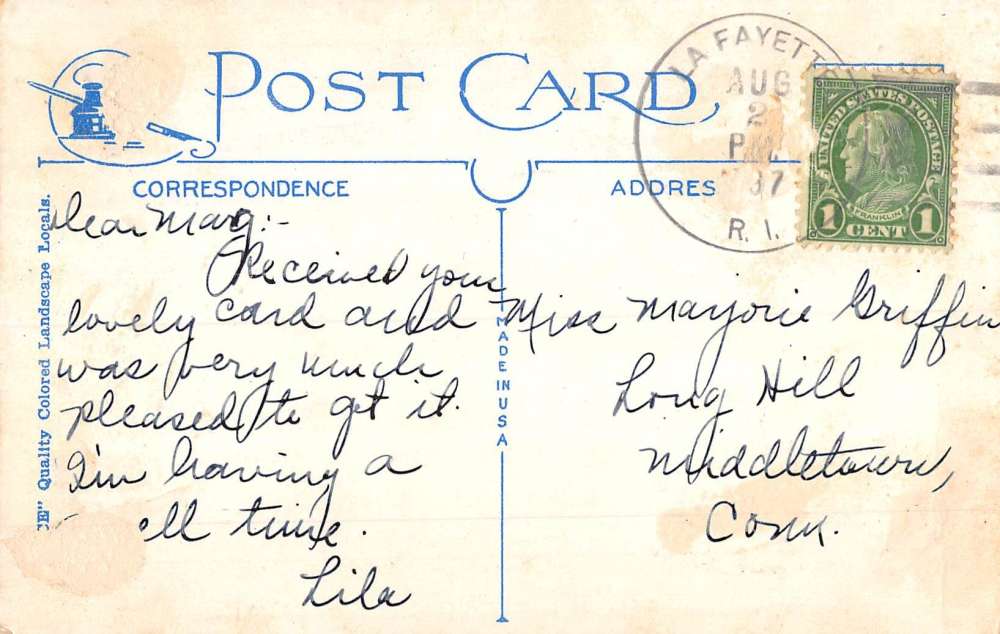 POST CARD
LA FAYETTE
AUG
2
PM
37
R. I.
UNITED STATES POSTAGE
FRANKLIN
1 CENT 1
CORRESPONDENCE
ADDRES
E" Quality Colored Landscape Locals.
MADE IN USA
Dear Marg:-
Received your
lovely card and
was very much
pleased to get it.
I'm having a
ll time.
Lila
Miss Marjorie Griffin
Long Hill
Middletown,
Conn.